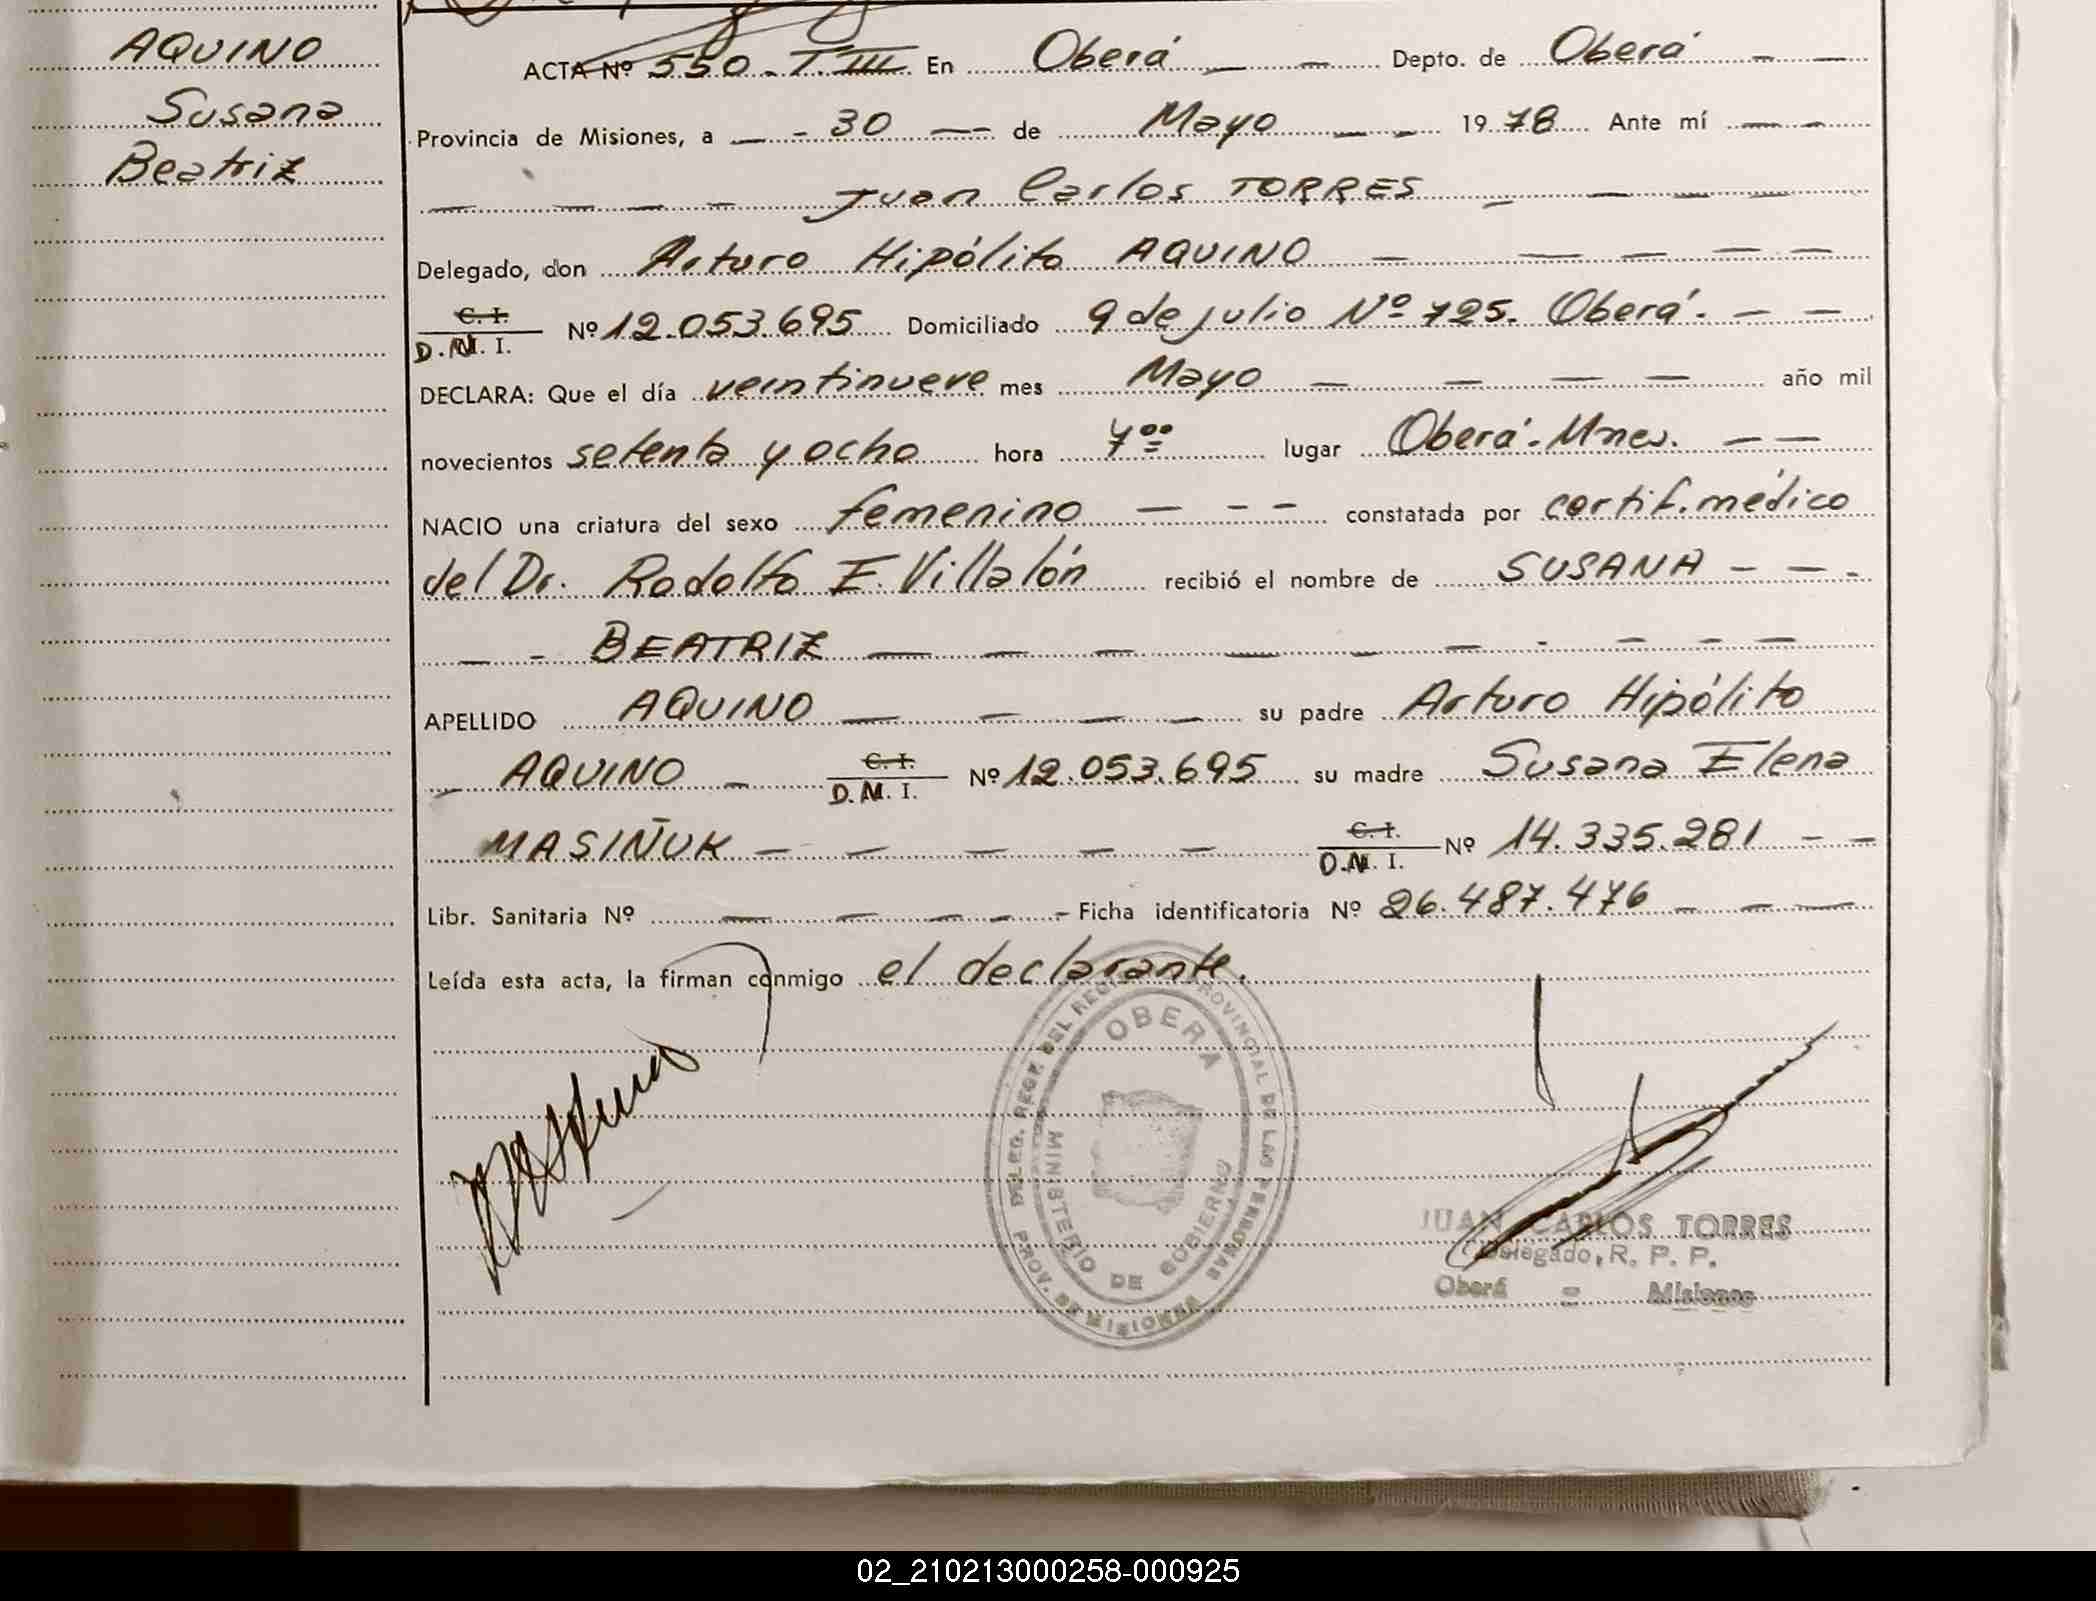 AQUINO
Susana
Beatriz
ACTA Nº 550 - T. III En Oberá Depto. de Oberá
Provincia de Misiones, a 30 de Mayo 1978 Ante mí
Juan Carlos TORRES
Delegado, don Arturo Hipólito AQUINO
C. I.
D. N. I. Nº 12.053.695 Domiciliado 9 de julio Nº 725. Oberá.
DECLARA: Que el día veintinueve mes Mayo año mil
novecientos setenta y ocho hora 7⁰⁰ lugar Oberá - Mnes.
NACIO una criatura del sexo femenino constatada por certif. médico
del Dr. Rodolfo E. Villalón recibió el nombre de SUSANA
BEATRIZ
APELLIDO AQUINO su padre Arturo Hipólito
AQUINO C. I. D. N. I. Nº 12.053.695 su madre Susana Elena
MASIÑUK C. I. D. N. I. Nº 14.335.281
Libr. Sanitaria Nº Ficha identificatoria Nº 26.487.476
Leída esta acta, la firman conmigo el declarante.
DELEG. REGP. DEL REG. PROVINCIAL DE LAS PERSONAS
OBERA
MINISTERIO DE GOBIERNO
PROV. DE MISIONES
JUAN CARLOS TORRES
Delegado, R. P. P.
Oberá - Misiones
02_210213000258-000925